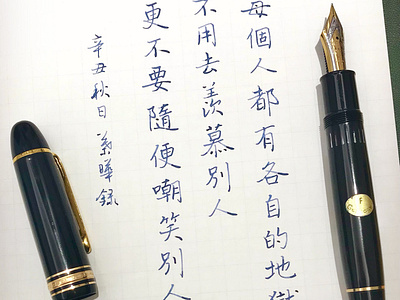 每個人都有各自的地獄
不用去羨慕別人
更不要隨便嘲笑別人
辛丑秋日 曄錄
F